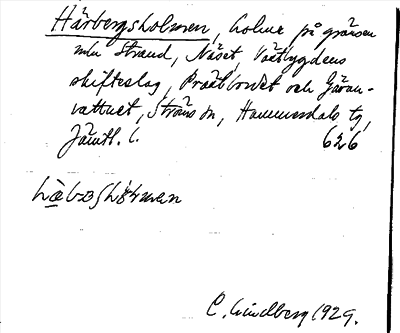 Härbergsholmen, holme på gränsen
mln Strand, Näset, Västbygdens
skifteslag, Prästbordet och Gåxn-
vattnet, Ströms sn, Hammerdals tg,
Jämtl. l. 626
C. Lindberg 1929.